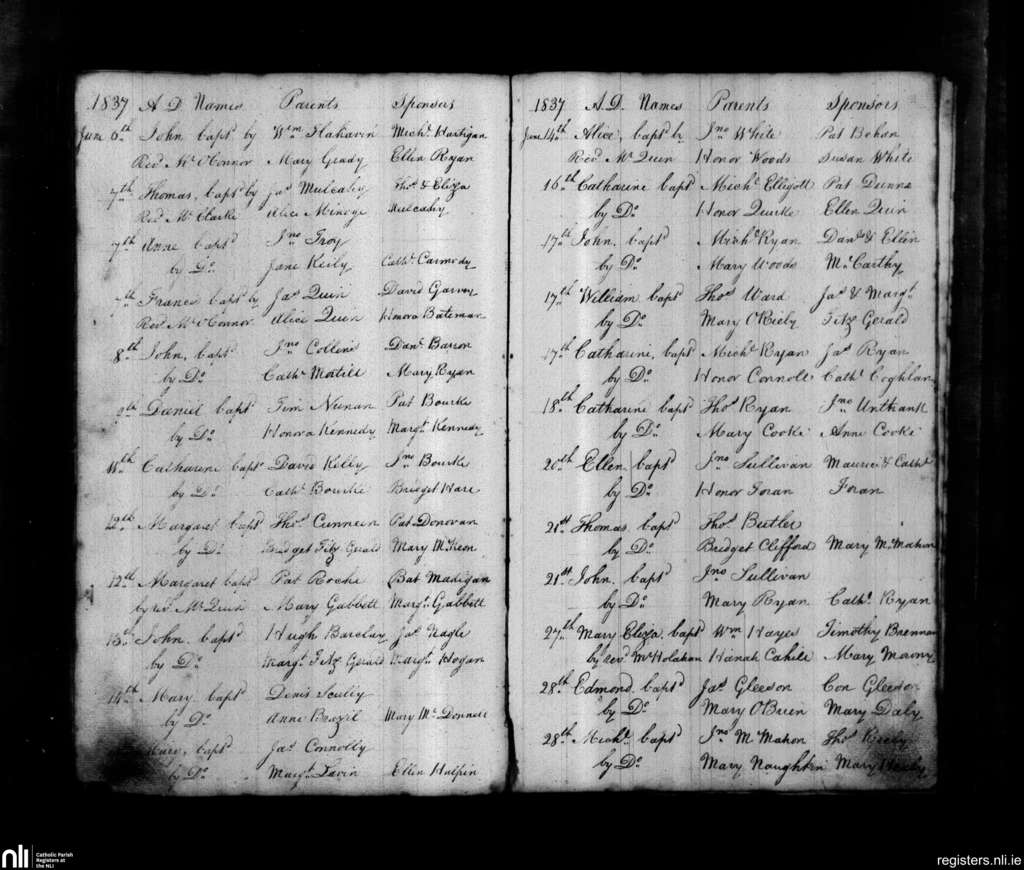 1837 A D Names Parents Sponsors
June 6th John bapsd by Wm Flahavin Michl Hartigan
Revd Mr O'Connor Mary Grady Ellen Ryan
7th Thomas, bapsd by Jas Mulcahy Thos & Eliza
Revd Mr Clarke Alice Minoge Mulcahy
7th Anne bapsd Jno Troy
by Do Jane Keily Cathe Carmody
7th Francis bapsd by Jas Quin David Garvey
Revd Mr O'Connor Alice Quin Honora Bateman
8th John, bapsd Jno Collins Danl Barron
by Do Cathe Mary Ryan
9th Daniel bapsd Tim Neenan Pat Bourke
by Do Honora Kennedy Margt Kennedy
11th Catharine bapsd David Kelly Jno Bourke
by Do Cathe Bourke Bridget Hare
12th Margaret bapsd Thos Cunneen Pat Donovan
by Do Bridget Fitz Gerald Mary McKeon
12th Margaret bapsd Pat Roche Bat Madigan
by revd Mr Quin Mary Gabbett Margt Gabbett
13th John bapsd Hugh Barclay Jas Nagle
by Do Margt Fitz Gerald Margt Hogan
14th Mary bapsd Denis Scully
by Do Anne Brazil Mary Mc Donnell
Mary, bapsd Jas Connolly
by Do Margt Lavin Ellen Halpin
1837 A.D. Names Parents Sponsors
June 14th Alice, bapsd by Jno White Pat Bohan
Revd Mr Quin Honor Woods Susan White
16th Catharine bapsd Michl Elligott Pat Dunne
by Do Honor Quirke Ellen Quin
17th John, bapsd Michl Ryan Danl & Ellen
by Do Mary Woods McCarthy
17th William bapsd Thos Ward Jas & Margt
by Do Mary O'Kieby Fitz Gerald
17th Catharine, bapsd Michl Ryan Jas Ryan
by Do Honor Connoll Cathe Coghlan
18th Catharine bapsd Thos Ryan Jno Unthank
by Do Mary Cooke Anne Cooke
20th Ellen bapsd Jno Sullivan Maurice & Cathe
by Do Honor Foran Foran
21st Thomas bapsd Thos Butler
by Do Bridget Clifford Mary McMahon
21st John, bapsd Jno Sullivan
by Do Mary Ryan Cathe Ryan
27th Mary Eliza bapsd Wm Hayes Timothy Brennan
by revd Mr Holahan Hanah Cahill Mary Morony
28th Edmond bapsd Jas Gleeson Con Gleeson
by Do Mary O'Brien Mary Daly
28th Michl bapsd Jno McMahon Thos Keely
by Do Mary Naughten Mary
nli
Catholic Parish
Registers at
the NLI
registers.nli.ie